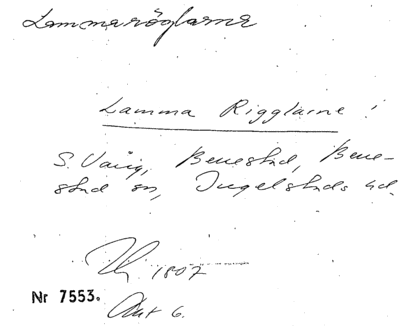 Lammaröglarna
Lamma Rigglarne!
S. Vång, Benestad, Bene-
stad sn, Ingelstads hd.
1807
Nr 7553.
Akt 6.